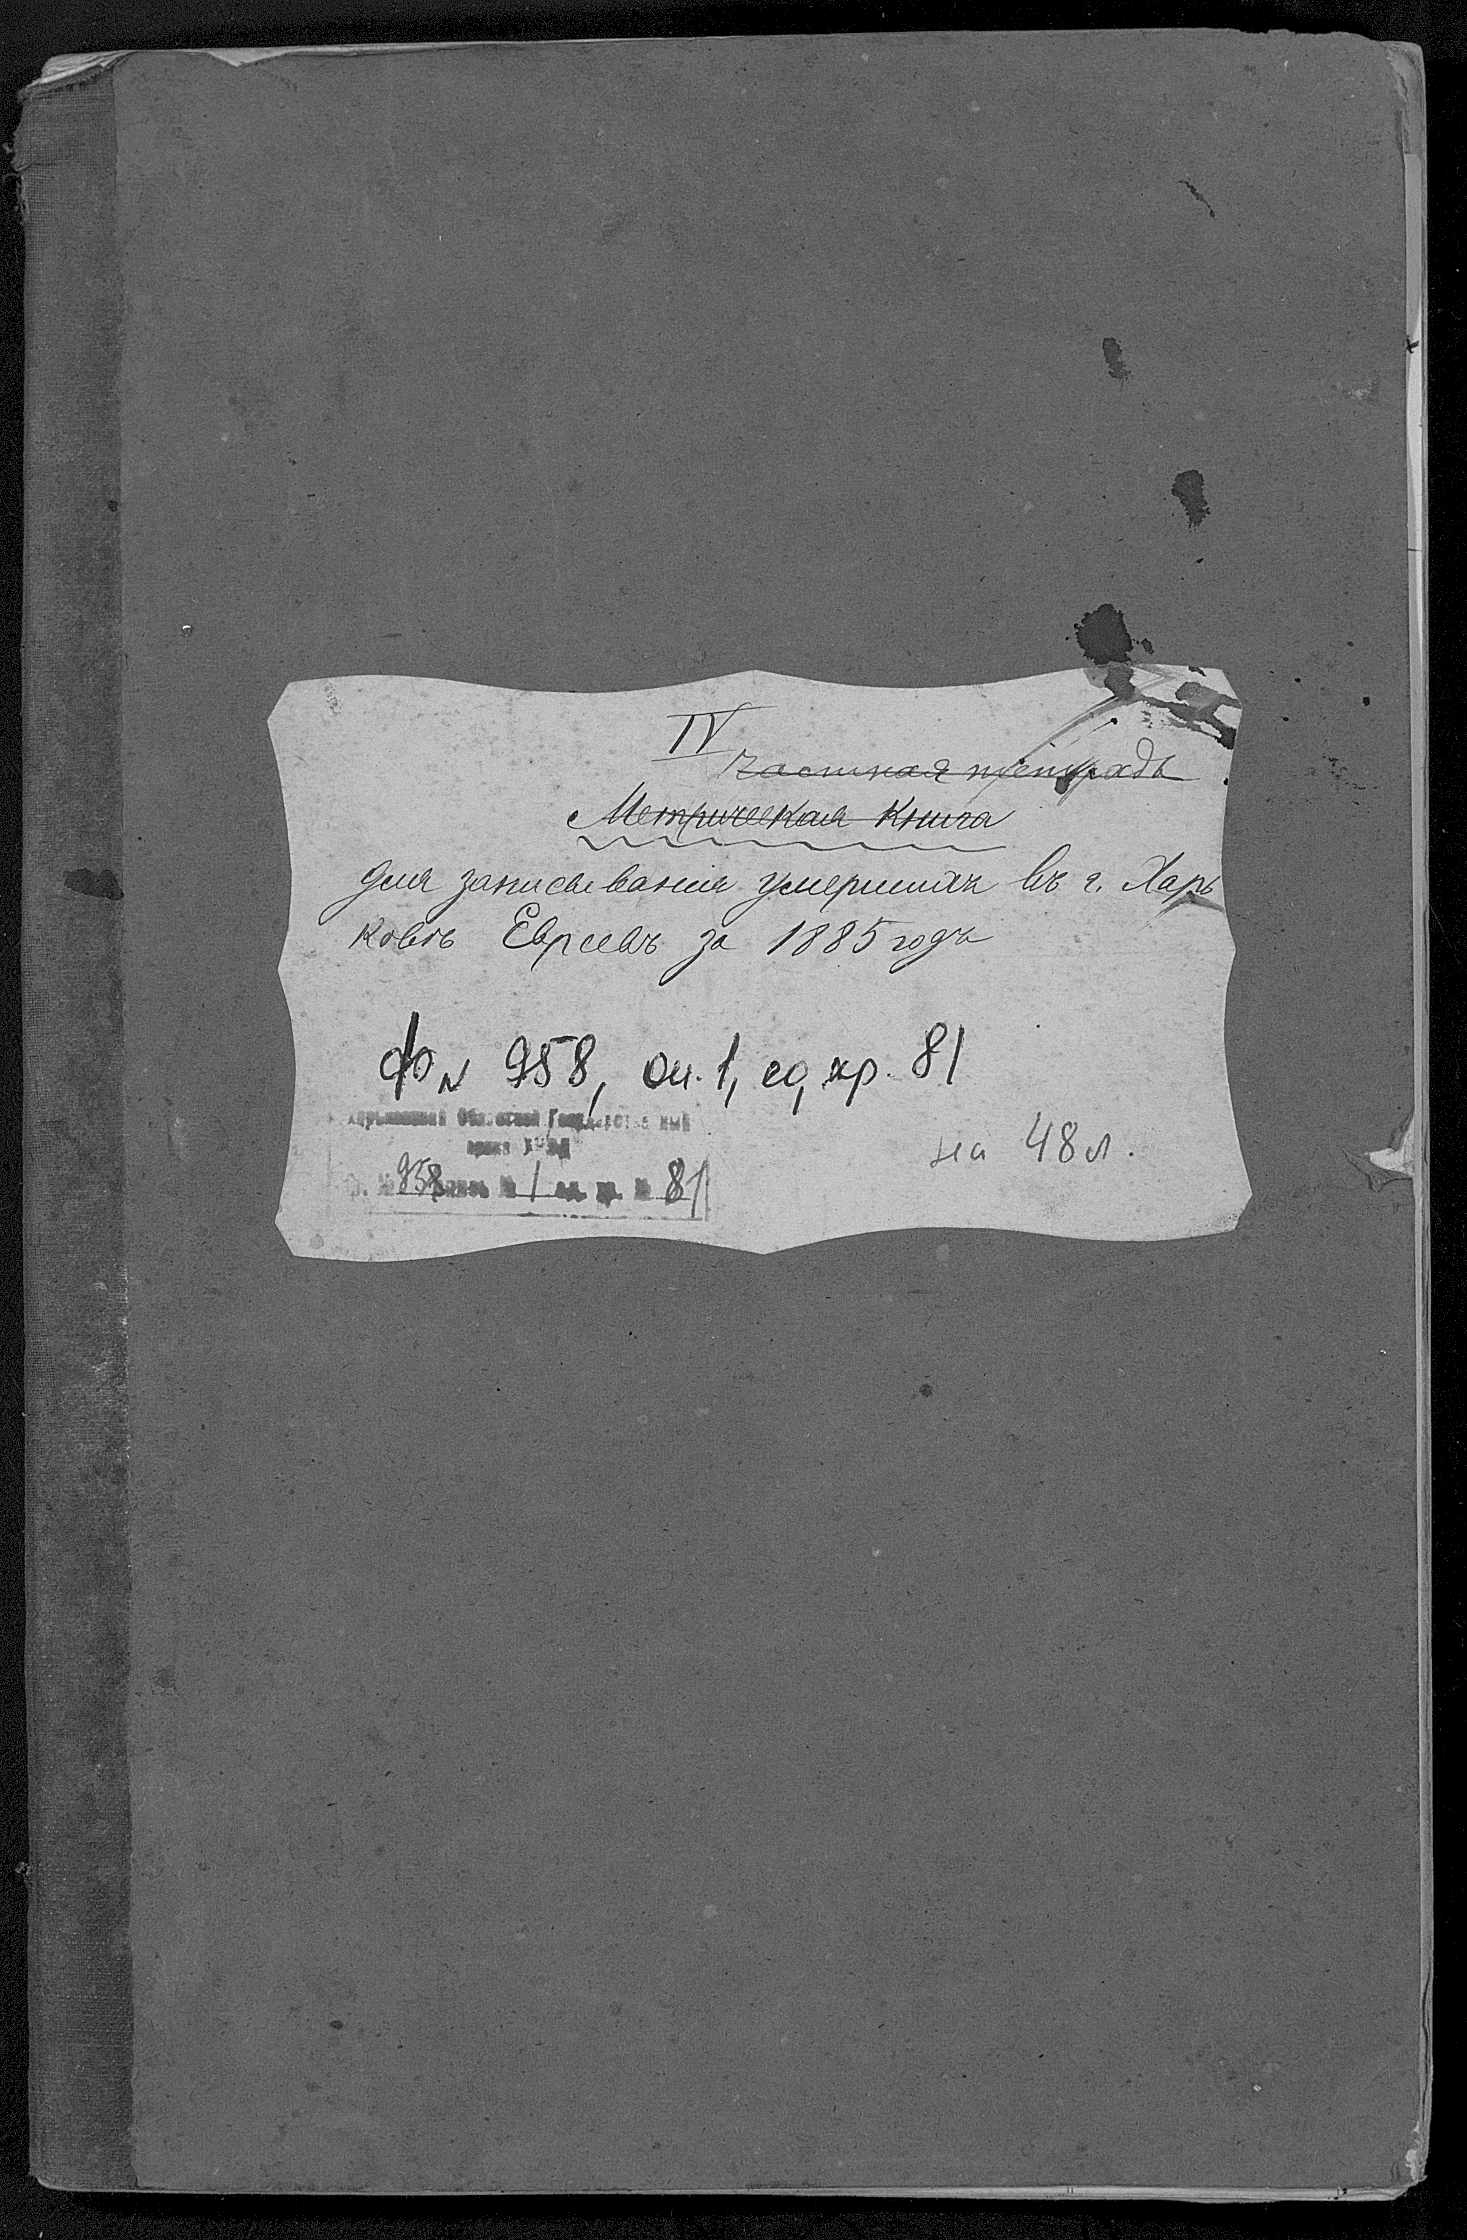 IV
Частная тетрадь
Метрическая Книга
для записыванія умершихъ въ г. Харь
ковѣ Евреевъ за 1885 годъ
ф N 958, оп. 1, ед, хр. 81
Харьковский Областной Государственный
архив
на 48 л.
958 опись № 1 ед. хр. № 81